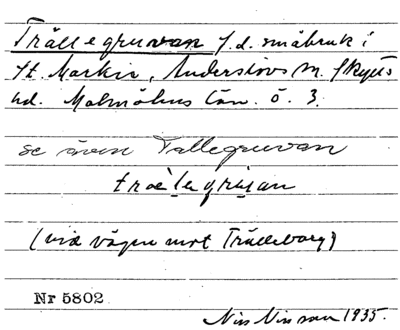 Trällegruvan f.d. småbruk i
St. Markie, Anderslövs M. Skytts
hd. Malmöhus län. ö. 3.
se även Tallegruvan
(vid vägen mot Trälleborg)
Nr 5802
Nils Nilsson 1935.